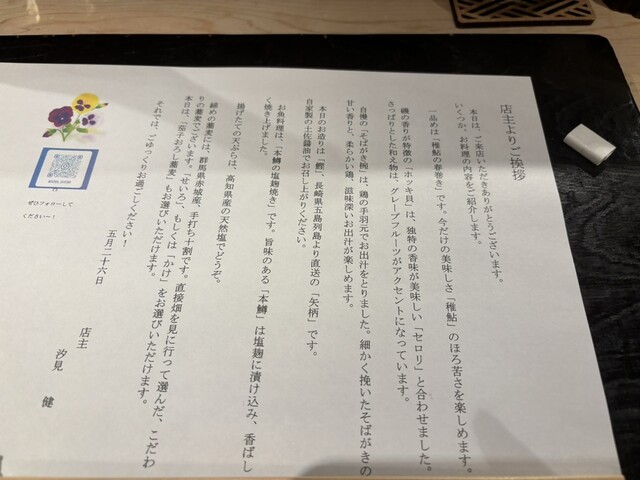 店主よりご挨拶
本日は、ご来店いただきありがとうございます。
いくつか、お料理の内容をご紹介します。
一品めは「稚鮎の春巻き」です。今だけの美味しさ「稚鮎」のほろ苦さを楽しめます。
磯の香りが特徴の「ホッキ貝」は、独特の香味が美味しい「セロリ」と合わせました。
さっぱりとした和え物は、グレープフルーツがアクセントになっています。
自慢の「そばがき椀」は、鶏の手羽元でお出汁をとりました。細かく挽いたそばがきの
甘い香りと、柔らかい鶏、滋味深いお出汁が楽しめます。
本日のお造りは「鰹」、長崎県五島列島より直送の「矢柄」です。
自家製の土佐醤油でお召し上がりください。
お魚料理は、「本鱒の塩麹焼き」です。旨味のある「本鱒」は塩麹に漬け込み、香ばし
く焼き上げました。
揚げたての天ぷらは、高知県産の天然塩でどうぞ。
締めの蕎麦には、群馬県赤城産、手打ち十割です。直接畑を見に行って選んだ、こだわ
りの蕎麦でございます。「せいろ」、もしくは「かけ」をお選びいただけます。
本日は、「茄子おろし蕎麦」もお選びいただけます。
それでは、ごゆっくりお過ごしください！
五月二十六日
店主
汐見 健
ぜひフォローして
ください〜！